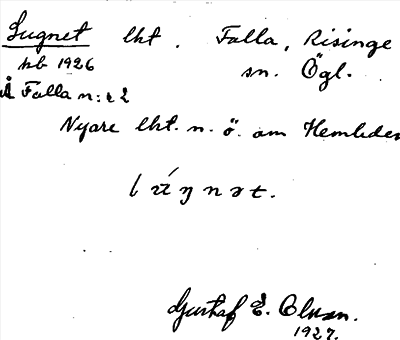 Lugnet lht. Falla, Risinge
hb 1926 sn. Ögl.
Å Falla n:r 2
Nyare lht. n. ö. om Hemleden
Gustaf E. Olsson.
1927.